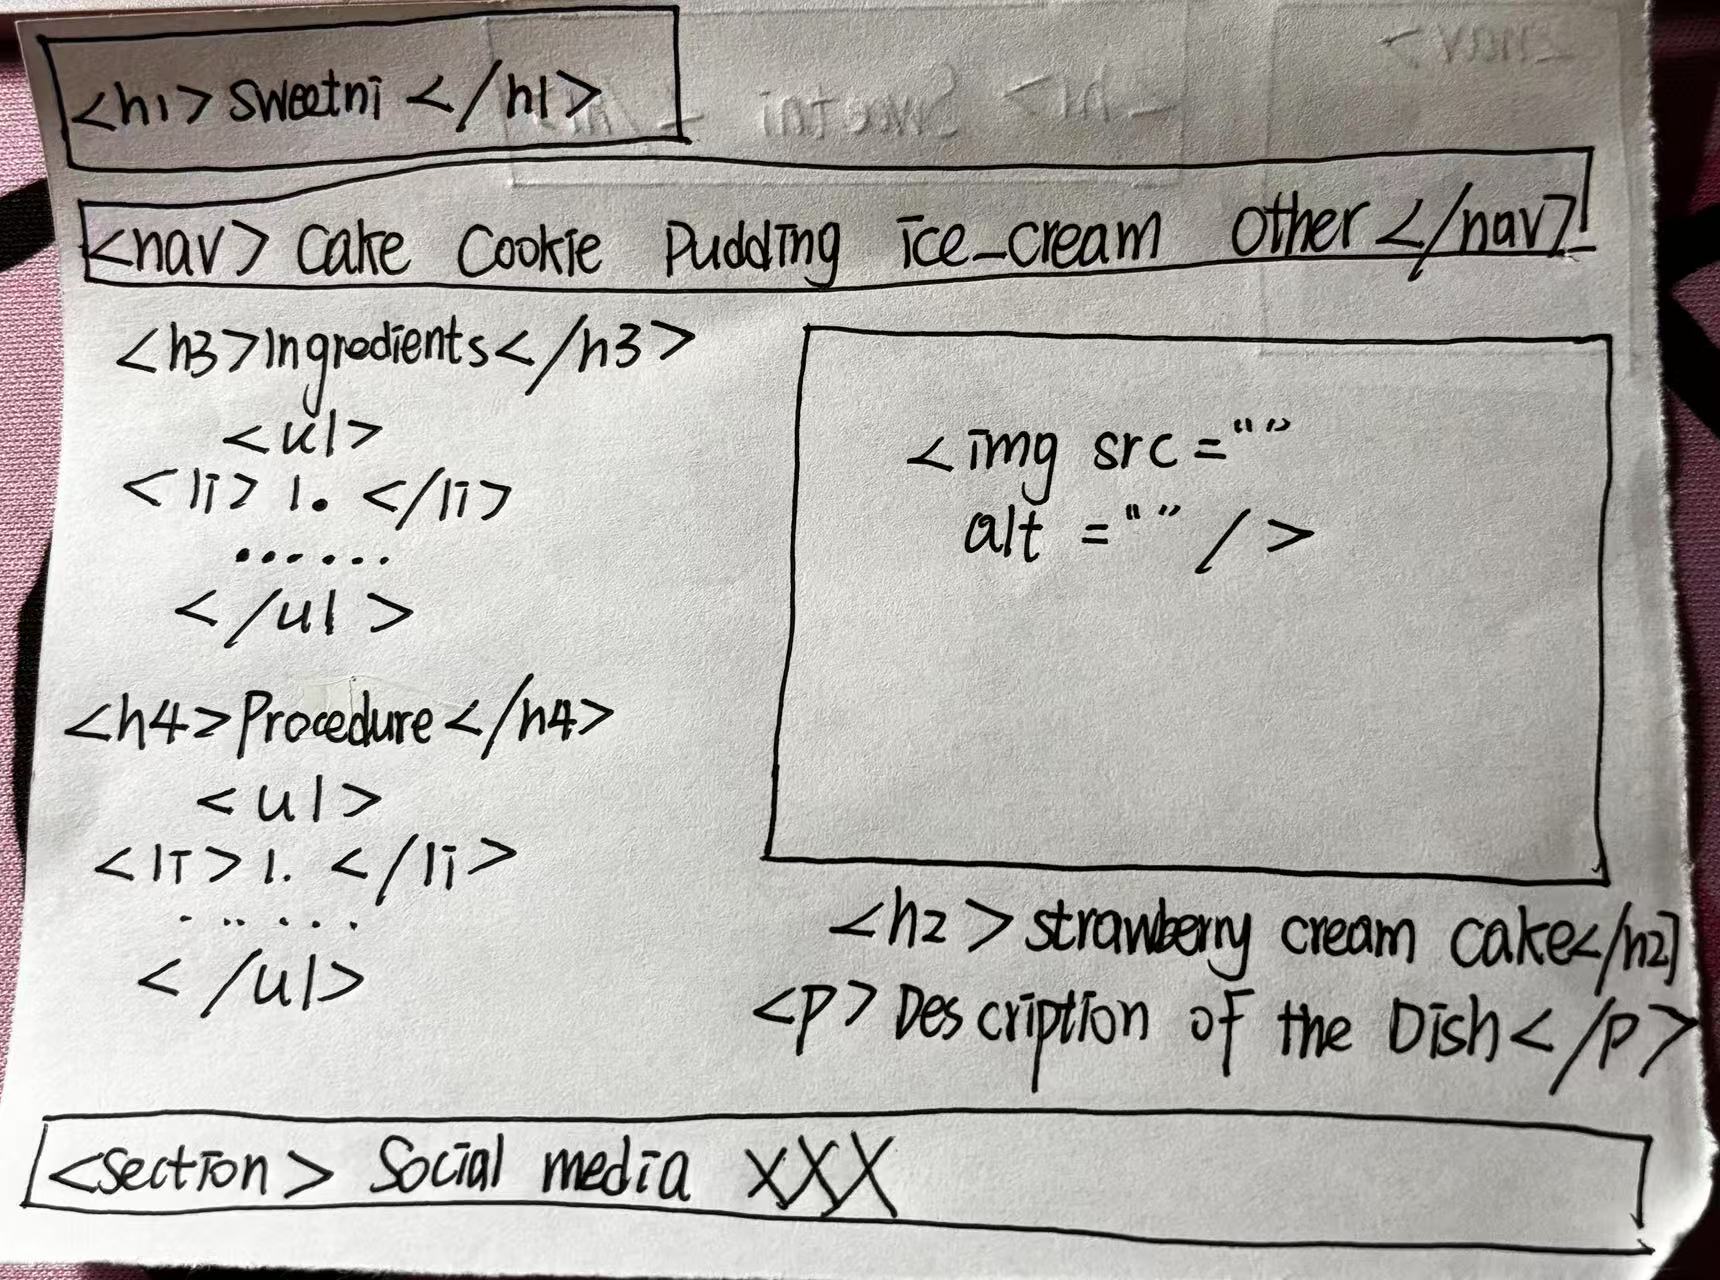 <h1> Sweetni </h1>
<nav> Cake Cookie Pudding ice_cream other </nav>
<h3>Ingredients</h3>
<ul>
<li> 1. </li>
......
</ul>
<h4>Procedure</h4>
<ul>
<li> 1. </li>
......
</ul>
<img src=""
alt ="" />
<h2> strawberry cream cake</h2]
<p> Description of the Dish</p>
<section> Social media XXX